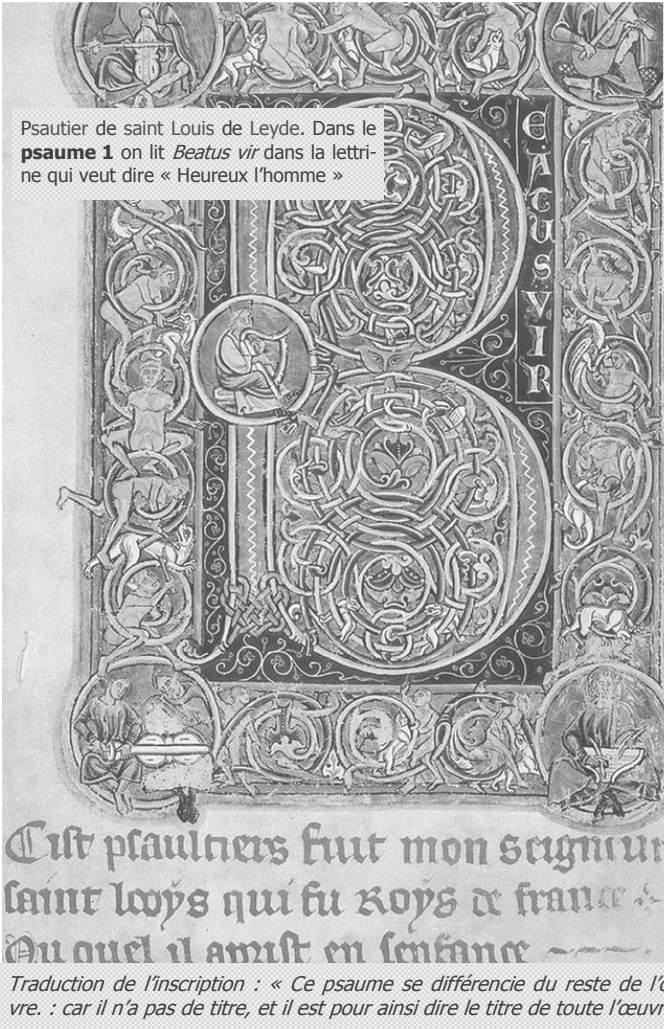 Psautier de saint Louis de Leyde. Dans le
psaume 1 on lit Beatus vir dans la lettri-
ne qui veut dire « Heureux l’homme »
B
EATUS
VIR
Cist psaultiers fuit mon seigneur
saint looys qui fu roys de france
Ou quel il aprist en senfance
Traduction de l’inscription : « Ce psaume se différencie du reste de l’
vre. : car il n’a pas de titre, et il est pour ainsi dire le titre de toute l’œuv